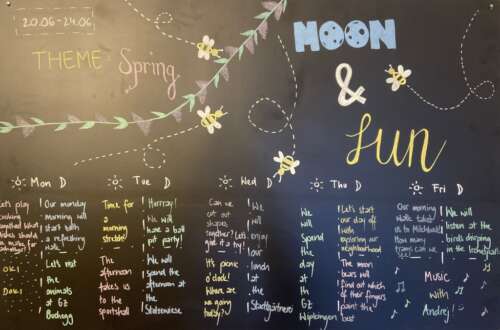 20.06-24.06
THEME: Spring
MOON
&
Sun
Mon D Tue D Wed D Thu D Fri D
Let's play
together! What
Our monday
morning will
start with
a refreshing
Let's visit
the
animals
at GZ
Buchegg
Time for
a
morning
stretch!
The
afternoon
takes us
to the
sportshall
Hurray!
We will
have a ball
pit party!
We will
spend the
afternoon
at
the
Stadionwiese
Can we
cut out
shapes
together?
give it a try!
It's picnic
o'clock!
Where are
we going
today?
We
will
enjoy
our
lunch
at
the
Stadtgärtnerei
We
will
spend
the
day
at
the
GZ
Wipkingen
Let's start
our day
off
with
exploring our
neighborhood
The
moon
bears will
find out which
of their fingers
paint the
best
Our morning
walk takes
us to Milchbuck!
How many
trams can we
see
We will
listen at the
birds chirping
in the
Music
With
Andrej!